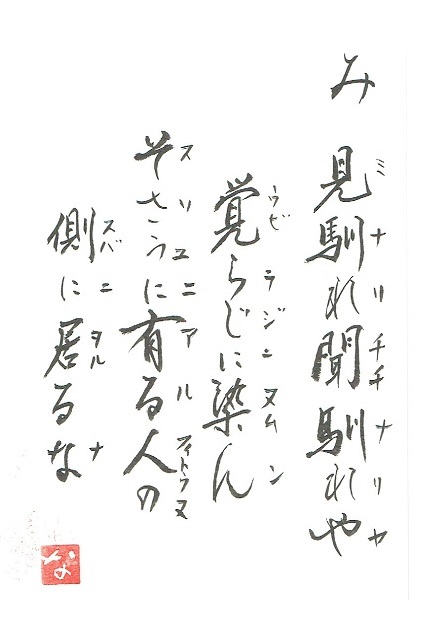 み
見馴れ聞馴れや
ミナリチチナリヤ
覚らじに染ん
ウビラジニスムン
そさうに有る人の
アルフィトゥヌ
側に居るな
スバニヲルナ
な